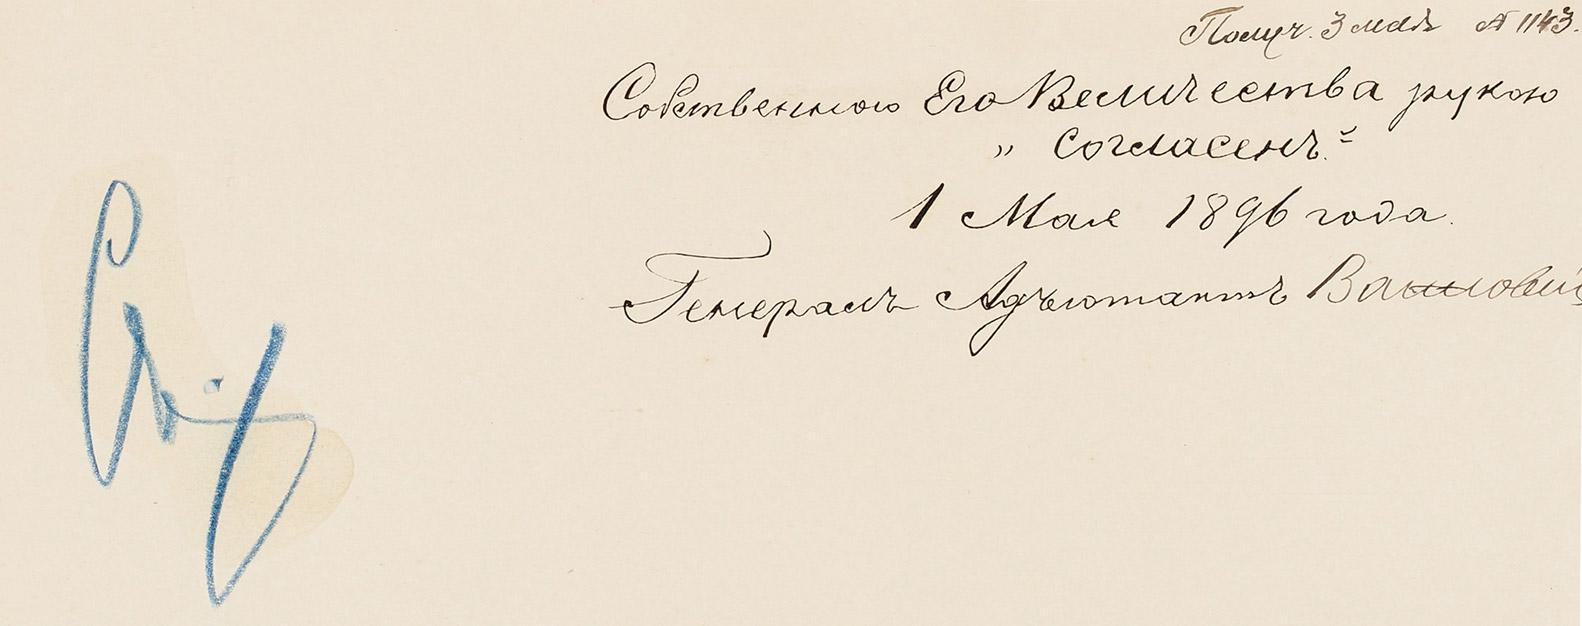 Получ. 3 маія № 1143.
Собственною Его Величества рукою
„ Согласенъ.“
1 Мая 1896 года.
Генералъ Адъютантъ Ванновскій